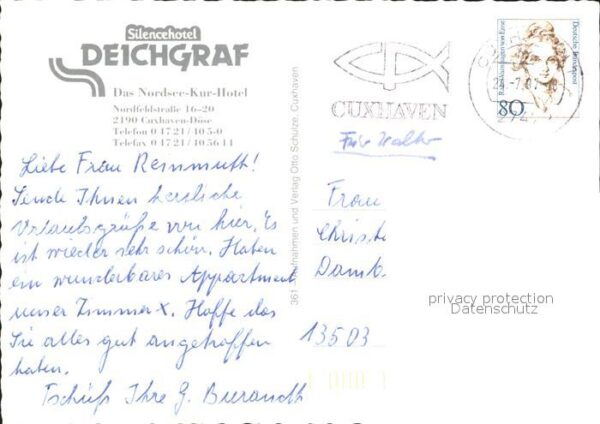 Silencehotel
DEICHGRAF
Das Nordsee-Kur-Hotel
Nordfeldstraße 16-20
2190 Cuxhaven-Döse
Telefon 0 47 21 / 40 5-0
Telefax 0 47 21 / 40 56 14
Liebe Frau Remmuth!
Sende Ihnen herzliche
Urlaubsgrüße von hier. Es
ist wieder sehr schön. Haben
ein wunderbares Appartment
unser Zimmer x. Hoffe das
Sie alles gut angetroffen
haben.
Tschüß Ihre G.
361 Aufnahmen und Verlag Otto Schulze, Cuxhaven
CUXHAVEN
Deutsche Bundespost
80
Frau
Christ
Damk
13503
privacy protection
Datenschutz